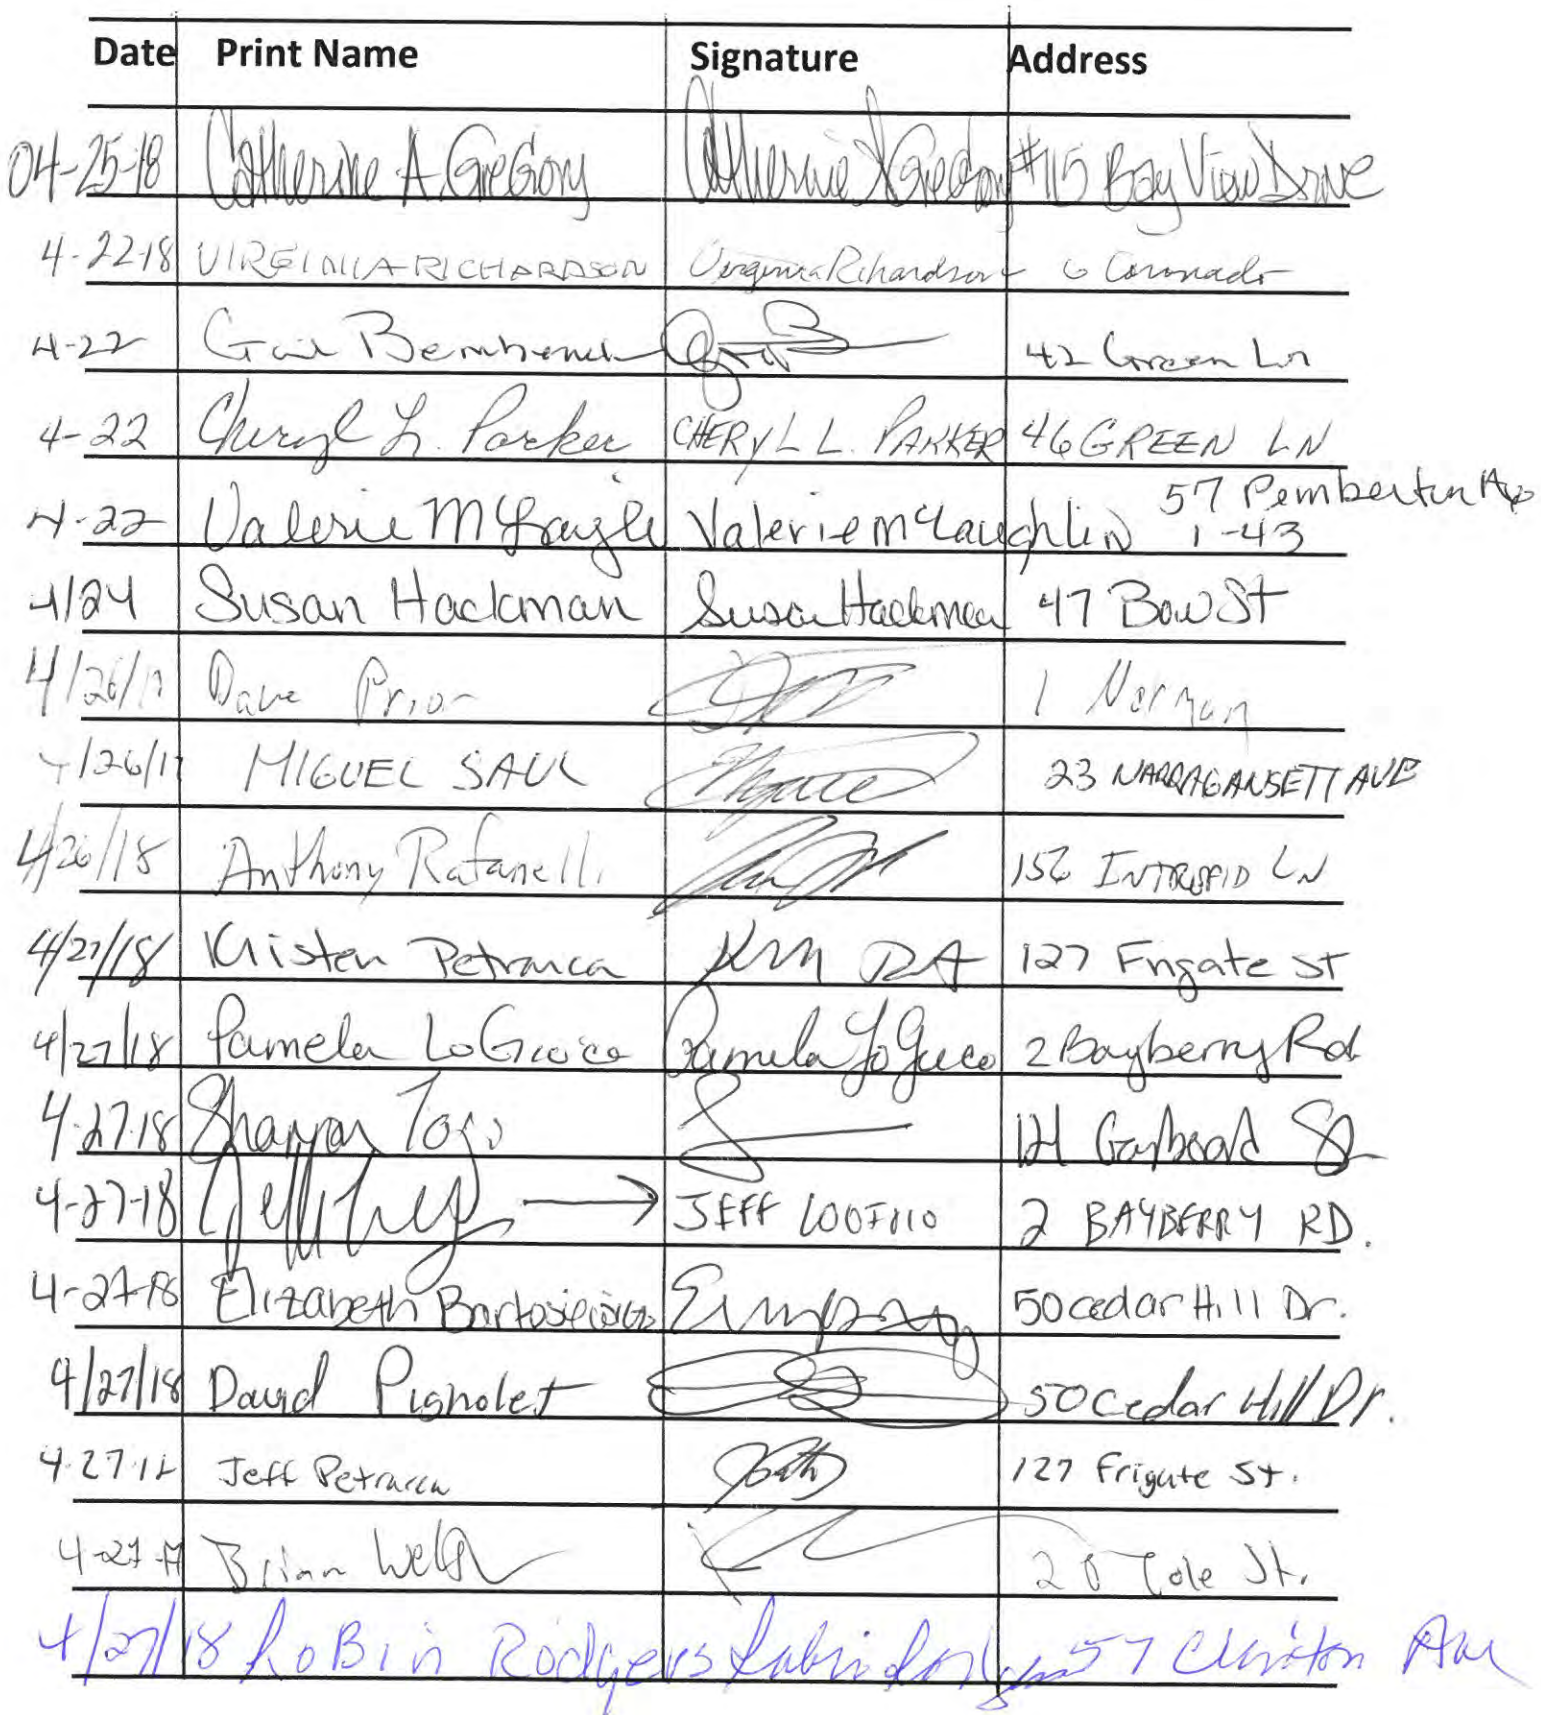 Date Print Name Signature Address
04-25-18 Catherine A. Gregory Catherine A Gregory #115 Bay View Drive
4-22-18 VIRGINIA RICHARDSON Virginia Richardson 6 Coronado
4-22 Gail 42 Green Ln
4-22 Cheryl L. Parker CHERYL L. PARKER 46 GREEN LN
57 Pemberton Ave
4-22 Valerie Valerie McLaughlin 1-43
4/24 Susan Hackman Susan Hackman 47 Bow St
4/26/ Dave Prior 1 Norman
4/26/ MIGUEL SAUL 23 NARRAGANSETT AVE
4/26/18 Anthony Rafanelli 156 INTREPID LN
4/27/18 Kristen Petrarca 127 Frigate ST
4/27/18 Pamela LoGiuco Pamela LoGiuco 2 Bayberry Rd
4-27-18 Sharron St
4-27-18 JEFF 2 BAYBERRY RD.
4-27-18 Elizabeth 50 cedar Hill Dr.
4/27/18 David Pignolet 50 Cedar Hill Dr.
4-27-18 Jeff Petrarca 127 Frigate St.
4-27- Brian Welch 20 Cole St.
4/27/18 RoBin Rodgers Robin Rodgers 57 Clinton Ave